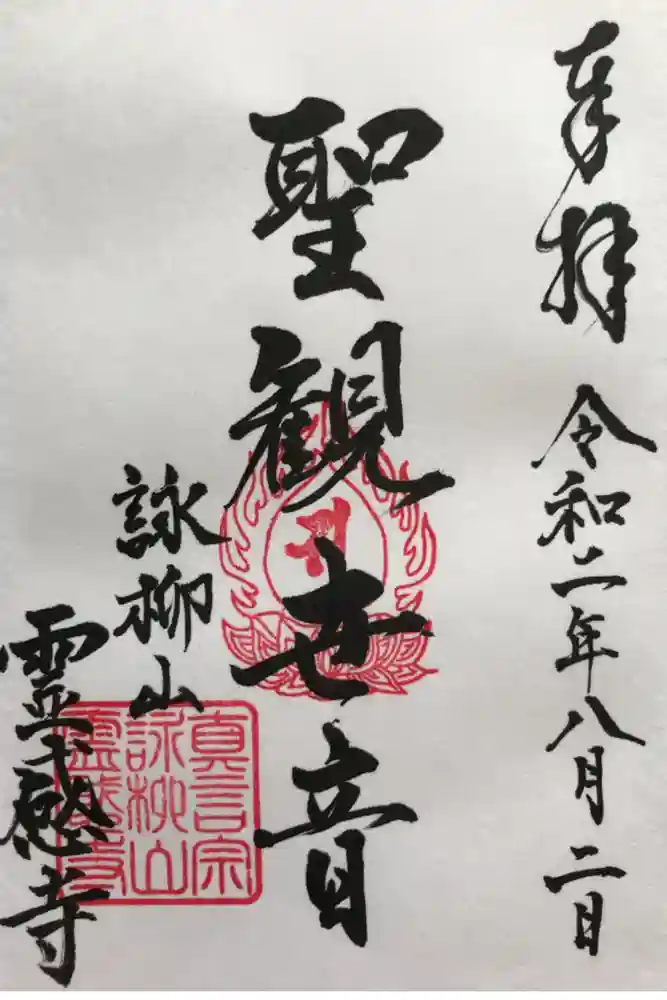 奉拝
令和二年八月二日
聖観世音
詠柳山
霊感寺
真言宗
詠柳山
霊感寺